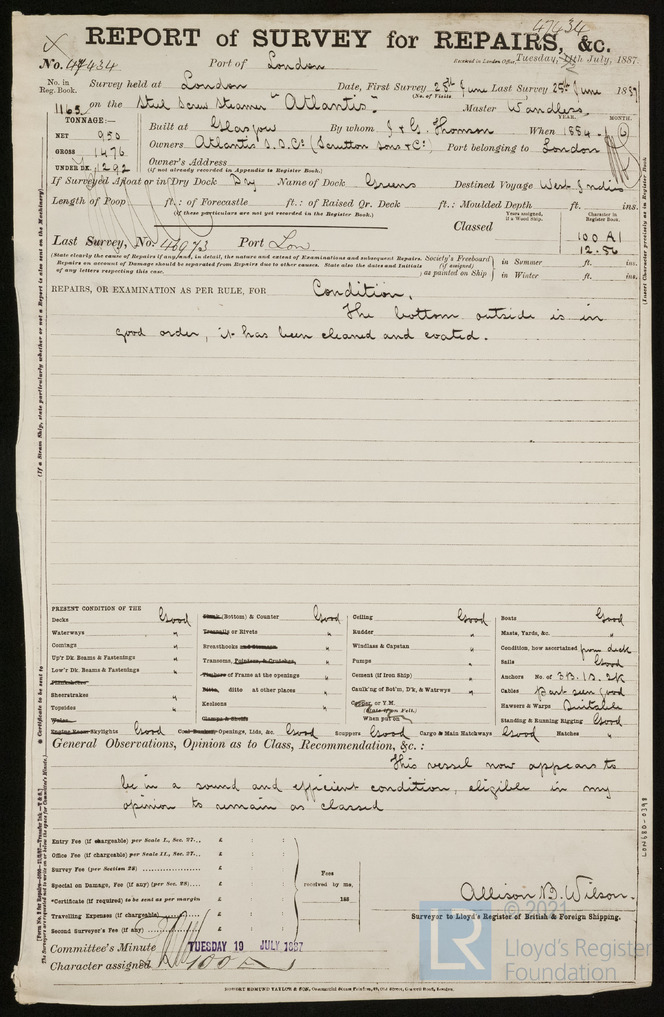 47434
REPORT of SURVEY for REPAIRS, &c.
No. 47434 Port of London Received in London Office, Tuesday, 19th July, 1887.
No. in Reg. Book. Survey held at London Date, First Survey 25th June Last Survey 25th June 1887
(No. of Visits
1165 on the Steel Screw Steamer "Atlantis. Master Wandless
TONNAGE:— YEAR. MONTH.
NET 950 Built at Glasgow By whom J & G. Thomson When 1884 - (6)
GROSS 1476 Owners Atlantis S.S.Co (Scrutton Sons & Co) Port belonging to London
UNDER DK. 1292 Owner's Address
(If not already recorded in Appendix to Register Book.)
If Surveyed Afloat or in Dry Dock Dry Name of Dock Greens Destined Voyage West Indies
Length of Poop ft.: of Forecastle ft.: of Raised Qr. Deck ft.: Moulded Depth ft. ins.
(If these particulars are not yet recorded in the Register Book.)
Years assigned, if a Wood Ship. Character in Register Book.
Classed 100 A1
12.86
Last Survey, No. 46973 Port Lon
(State clearly the cause of Repairs if any, and, in detail, the nature and extent of Examinations and subsequent Repairs.
Repairs on account of Damage should be separated from Repairs due to other causes. State also the dates and Initials
of any letters respecting this case.
Society's Freeboard (if assigned) as painted on Ship
in Summer ft. ins.
in Winter ft. ins.
REPAIRS, OR EXAMINATION AS PER RULE, FOR Condition.
The bottom outside is in
good order, it has been cleaned and coated.
PRESENT CONDITION OF THE
Decks Good
Waterways "
Comings "
Up'r Dk. Beams & Fastenings "
Low'r Dk. Beams & Fastenings "
Sheerstrakes "
Topsides "
Wales
Engine Room Skylights Good
Plank (Bottom) & Counter Good
Treenails or Rivets "
Breasthooks and Stemson "
Transoms, Pointers, & Crutches, "
Timbers of Frame at the openings "
Ditto, ditto at other places "
Keelsons "
Clamps & Shelfs
Coal Bunker Openings, Lids, &c. Good
Ceiling Good
Rudder "
Windlass & Capstan "
Pumps "
Cement (if Iron Ship) "
Caulk'ng of Bot'm, D'k, & Watrwys "
Copper, or Y.M.
(State if on Felt.)
When put on
Scuppers Good Cargo & Main Hatchways Good
Boats Good
Masts, Yards, &c. "
Condition, how ascertained from deck
Sails Good
Anchors No. of 3B.1S.2K
Cables Part seen good
Hawsers & Warps Suitable
Standing & Running Rigging Good
Hatches "
General Observations, Opinion as to Class, Recommendation, &c.:
This vessel now appears to
be in a sound and efficient condition, eligible in my
opinion to remain as classed
Entry Fee (if chargeable) per Scale I., Sec. 27... £ : :
Office Fee (if chargeable) per Scale II., Sec. 27... £ : :
Survey Fee (per Section 28) £ : :
Special on Damage, Fee (if any) (per Sec. 28) £ : :
*Certificate (if required) to be sent as per margin £ : :
Travelling Expenses (if chargeable) £ : :
Second Surveyor's Fee (if any) £ : :
Fees
received by me,
188
Allison B. Wilson.
Surveyor to Lloyd's Register of British & Foreign Shipping.
Committee's Minute TUESDAY 19 JULY 1887
Character assigned 100 A
ROBERT EDMUND TAYLOR & SON, Commercial Steam Printers, 19, Old Street, Goswell Road, London.
(If a Steam Ship, state particularly whether or not a Report is also sent on the Machinery)
* Certificate to be sent to
(Insert Character precisely as in Register Book
LON680-0398
© 2021
LR
Lloyd's Register
Foundation